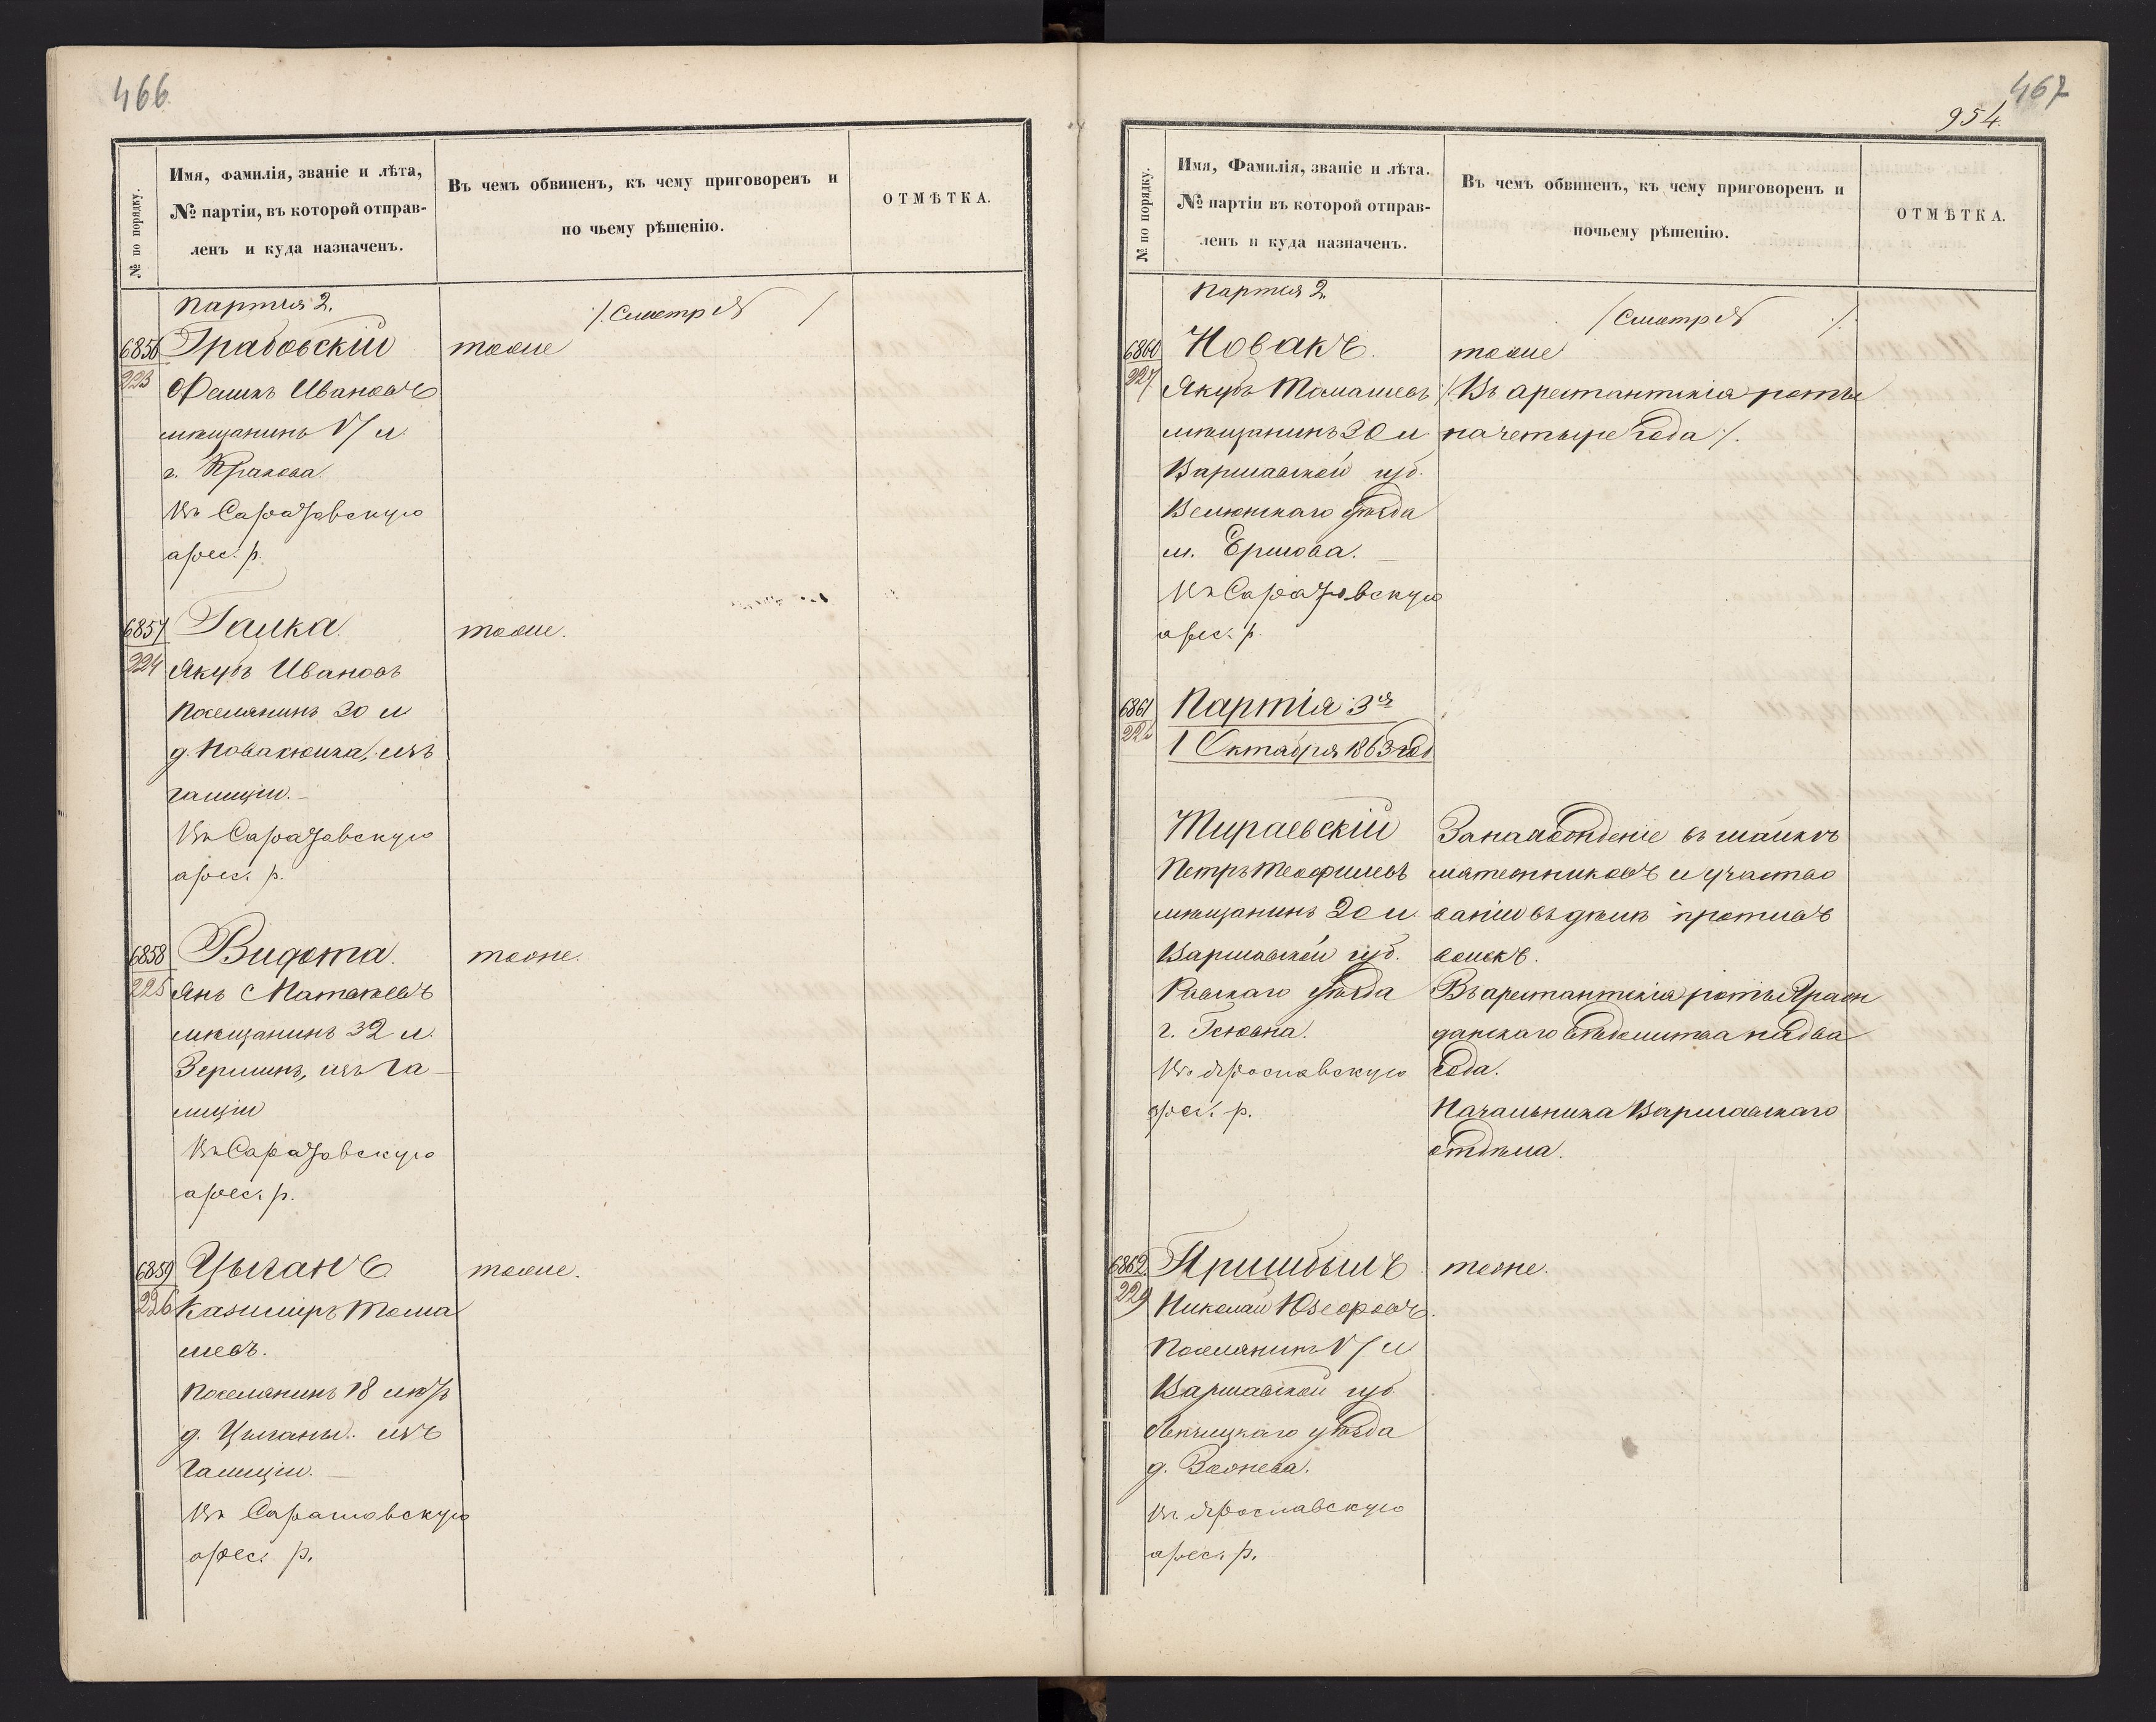 466.
№ по порядку.
Имя, фамилія, званіе и лѣта,
№ партіи, въ которой отправ-
ленъ и куда назначенъ.
Въ чемъ обвиненъ, къ чему приговоренъ и
по чьему рѣшенію.
ОТМѢТКА.
Партія 2.
/. Смотр №          /
6856 Грабовскій тоже
223 Ивановъ
мѣщанинъ 17 л.
г. Кракова.
Въ Саратовскую
арес. р.
6857 Галка. тоже.
224 Якубъ Ивановъ
Поселянинъ 30 л
д. изъ
Галиціи. —
Въ Саратовскую
арес. р.
6858 Видота. тоже.
225 Янъ Матвѣевъ
мѣщанинъ 32 л.
изъ Га-
лиціи
Въ Саратовскую
арес. р.
6859 Цыганъ тоже.
226 Казиміръ Тома
шевъ.
Поселянинъ 18 лѣтъ
д. Цыганы. изъ
Галиціи. —
Въ Саратовскую
арес. р.
467
954.
№ по порядку.
Имя, Фамилія, званіе и лѣта.
№ партіи въ которой отправ-
ленъ и куда назначенъ.
Въ чемъ обвиненъ, къ чему приговоренъ и
почьему рѣшенію.
ОТМѢТКА.
Партія 2.
/ Смотр №          /.
6860 Новакъ. тоже
227 Якубъ Томашевъ /. Въ арестантскія роты
мѣщанинъ 30 л на четыре года /.
Варшавской губ.
Велюнскаго уѣзда
м. —
Въ Саратовскую
арес. р.
6861 Партія 3я
228 1 Октября 1863 год
Мираевскій За нахожденіе въ шайкѣ
Петръ Теофилевъ мятежниковъ и участво
мѣщанинъ 20 л. ваніи въ дѣлѣ противъ
Варшавской губ. войскъ.
Равскаго уѣзда Въ арестантскія роты Граж
г. данскаго вѣдомства на два
Въ Ярославскую года.
арес. р. Начальника Варшавскаго
отдѣла.
6862 Пришбылъ тоже.
229 Николай Юзефовъ.
Поселянинъ 17 л
Варшавской губ.
Ленчицкаго уѣзда
д.
Въ Ярославскую
арес. р.